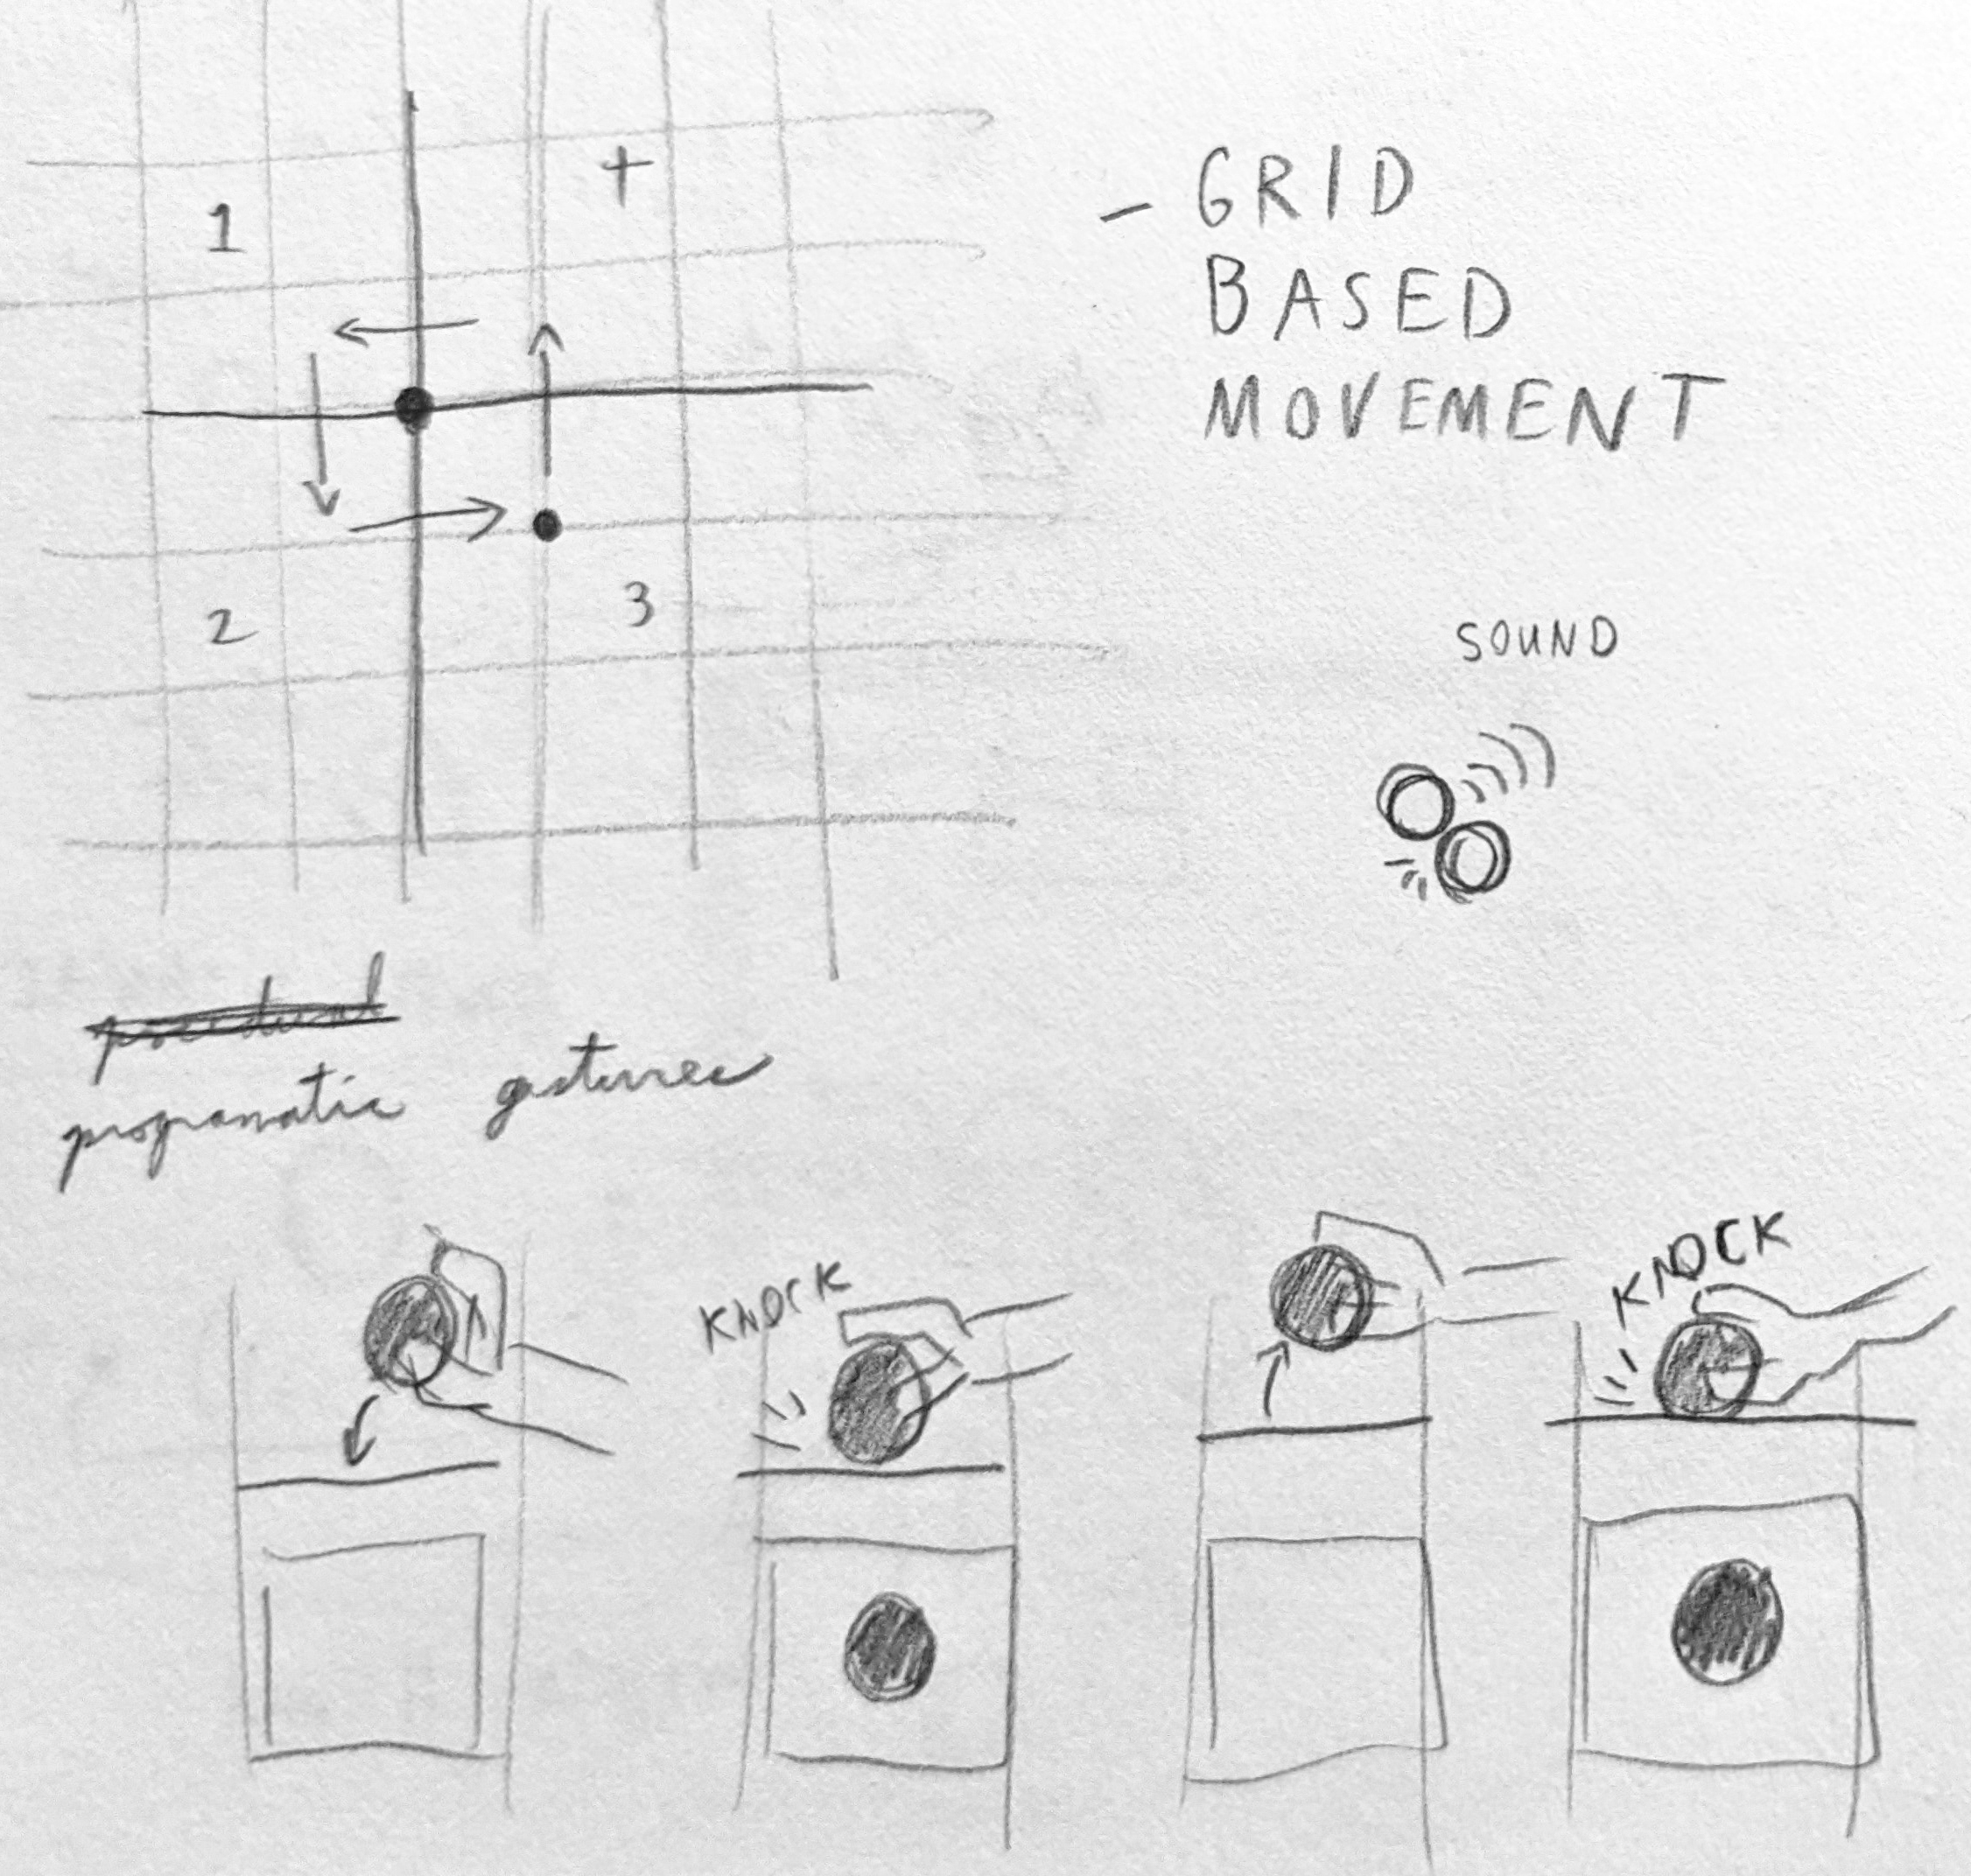 +
1
2
3
- GRID
BASED
MOVEMENT
SOUND
procedural
programatic gestures
KNOCK
KNOCK